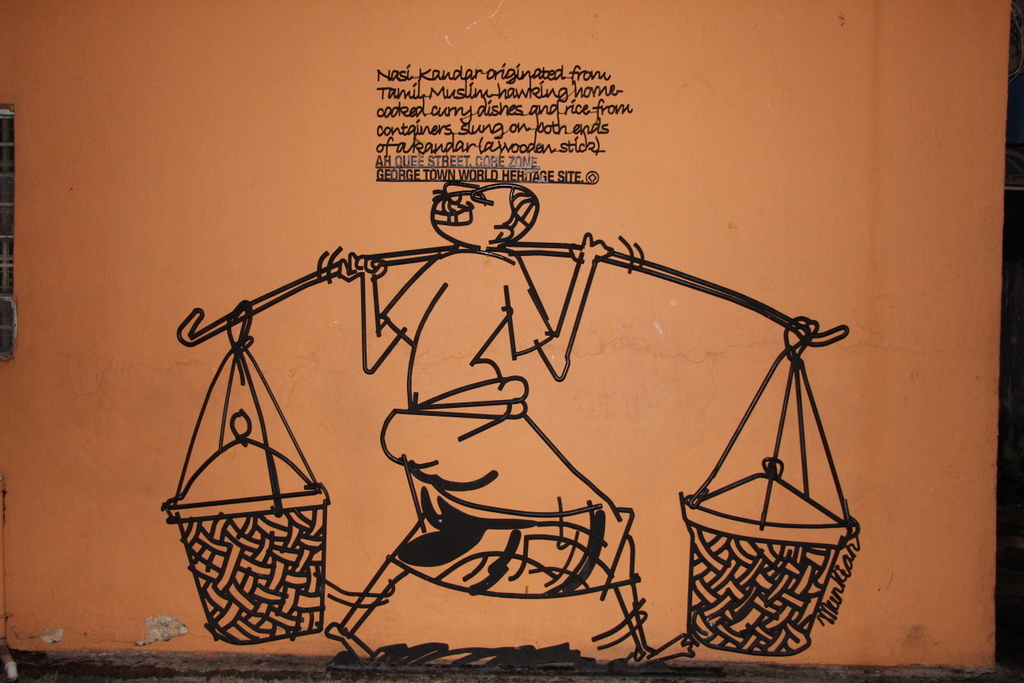 Nasi Kandar originated from
Tamil Muslim hawking home-
cooked curry dishes and rice from
containers slung on both ends
of a kandar (a wooden stick)
AH QUEE STREET. CORE ZONE.
GEORGE TOWN WORLD HERITAGE SITE.
Mun Kian